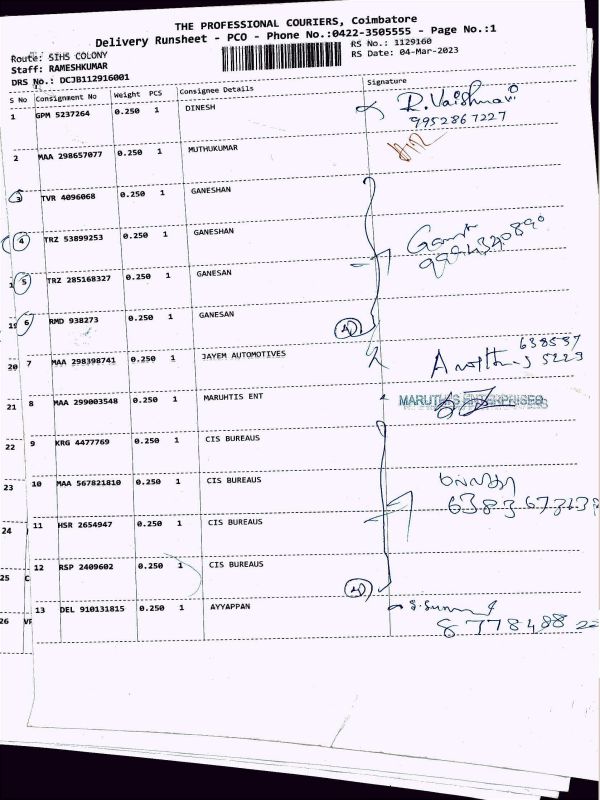 THE PROFESSIONAL COURIERS, Coimbatore
Delivery Runsheet - PCO - Phone No.:0422-3505555 - Page No.:1
Route: SIHS COLONY
RS No.: 1129160
Staff: RAMESHKUMAR
RS Date: 04-Mar-2023
DRS No.: DCJB112916001
S No Consignment No Weight PCS Consignee Details Signature
1 GPM 5237264 0.250 1 DINESH R. Vaishnavi
9952867227
2 MAA 298657077 0.250 1 MUTHUKUMAR
3 TVR 4096068 0.250 1 GANESHAN
4 TRZ 53899253 0.250 1 GANESHAN
5 TRZ 285168327 0.250 1 GANESAN
19 6 RMD 938273 0.250 1 GANESAN 4
20 7 MAA 298398741 0.250 1 JAYEM AUTOMOTIVES 638537
5223
21 8 MAA 299003548 0.250 1 MARUHTIS ENT MARUTHIS ENTERPRISES
22 9 KRG 4477769 0.250 1 CIS BUREAUS
23 10 MAA 567821810 0.250 1 CIS BUREAUS
24 11 HSR 2654947 0.250 1 CIS BUREAUS
25 C 12 RSP 2409602 0.250 1 CIS BUREAUS 4
26 VF 13 DEL 910131815 0.250 1 AYYAPPAN
8778488 22